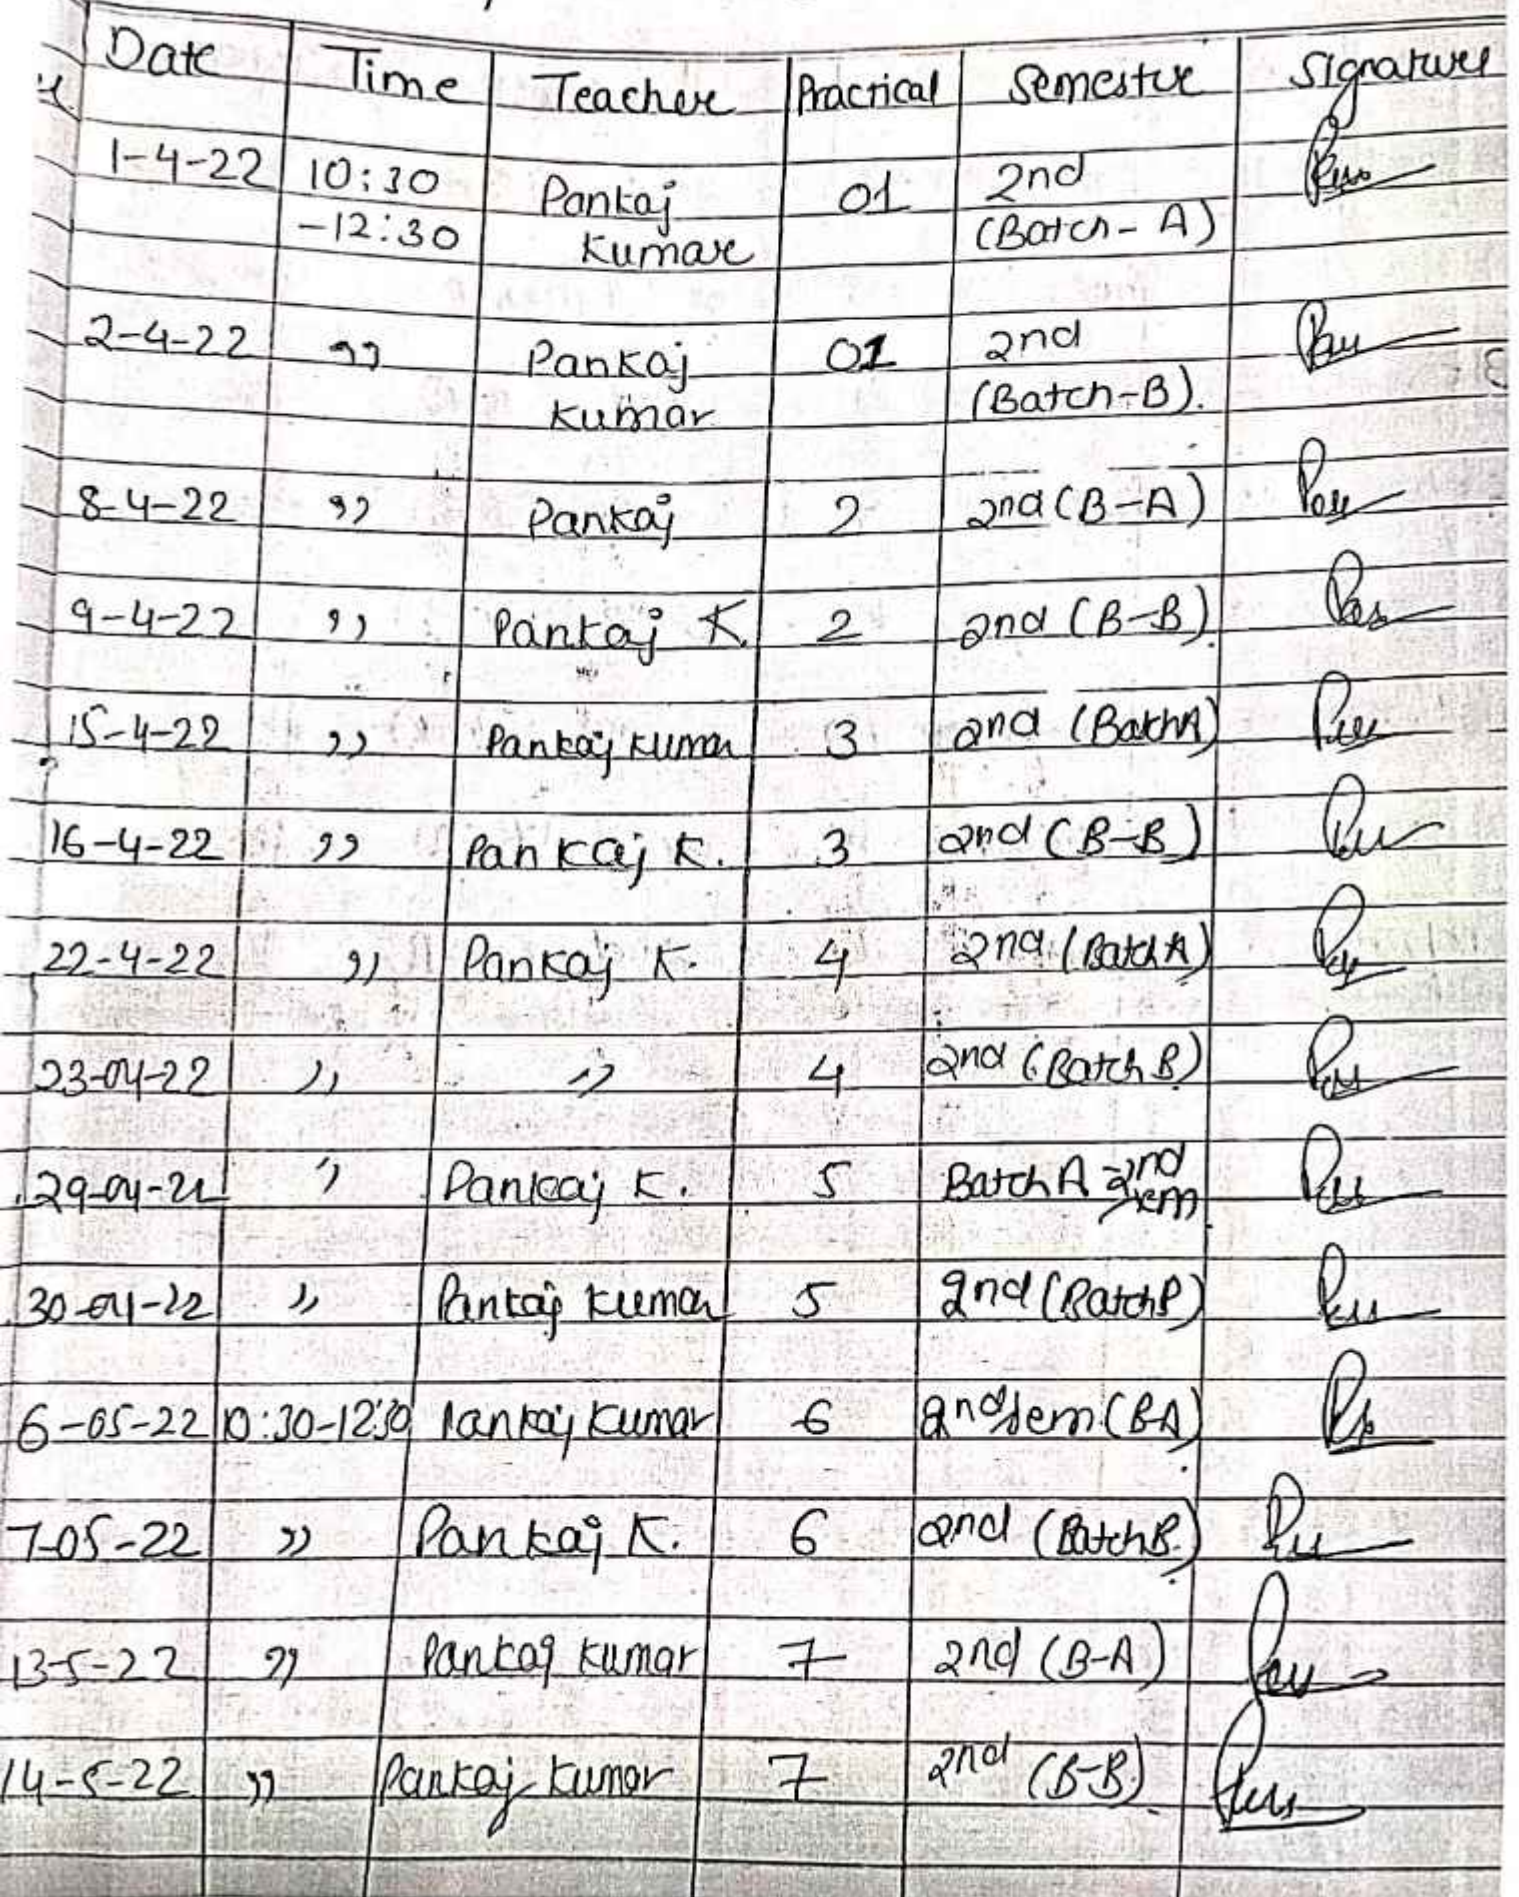 Date Time Teacher Practical Semester Signature
1-4-22 10:30 Pankaj 01 2nd
-12:30 Kumar (Batch-A)
2-4-22 " Pankaj 01 2nd
Kumar (Batch-B).
8-4-22 " Pankaj 2 2nd (B-A)
9-4-22 " Pankaj K. 2 2nd (B-B).
15-4-22 " Pankaj Kumar 3 2nd (Batch A)
16-4-22 " Pankaj K. 3 2nd (B-B)
22-4-22 " Pankaj K. 4 2nd (Batch A)
23-04-22 " " 4 2nd (Batch B)
29-04-22 " Pankaj K. 5 Batch A 2nd
sem
30-04-22 " Pankaj Kumar 5 2nd (Batch B)
6-05-22 10:30-12:30 Pankaj Kumar 6 2nd sem (B-A)
7-05-22 " Pankaj K. 6 2nd (Batch B.)
13-5-22 " Pankaj Kumar 7 2nd (B-A)
14-5-22 " Pankaj Kumar 7 2nd (B-B).